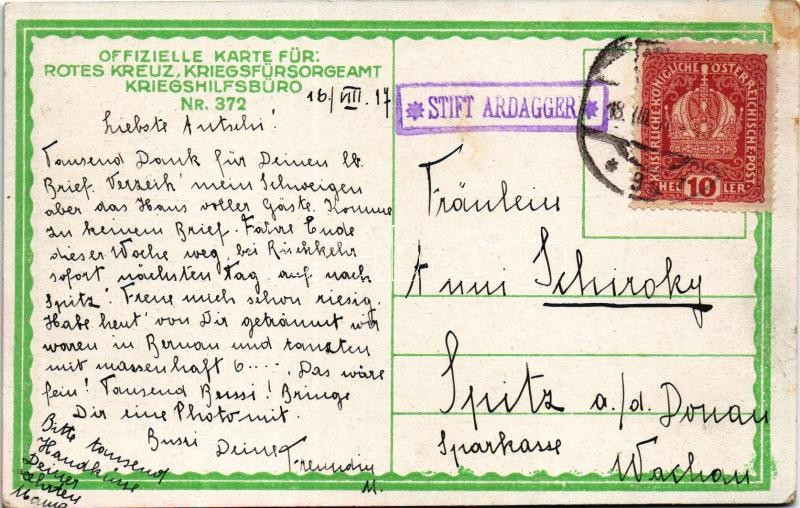 OFFIZIELLE KARTE FÜR:
ROTES KREUZ, KRIEGSFÜRSORGEAMT
KRIEGSHILFSBÜRO
NR. 372
16/VIII. 17
Liebste Antschi!
Tausend Dank für Deinen lb.
Brief. Verzeih' mein Schweigen
aber das Haus voller Gäste. Komme
zu keinem Brief. Fahre Ende
dieser Woche weg, bei Rückkehr
sofort nächsten Tag auf nach
Spitz! Freue mich schon riesig.
Habe heut' von Dir geträumt wir
waren in Bernau und tanzten
mit massenhaft 6.... Das wäre
fein! Tausend Bussi! Bringe
Dir eine Photo mit.
Bussi Deine
Freundin
M.
Bitte tausend
Handküsse
Deiner
Mama
* STIFT ARDAGGER *
18. VIII.
KAISERLICHKÖNIGLICHE ÖSTERREICHISCHE POST
HEL 10 LER
Fräulein
Anni Schiroky
Spitz a./d. Donau
Sparkasse
Wachau